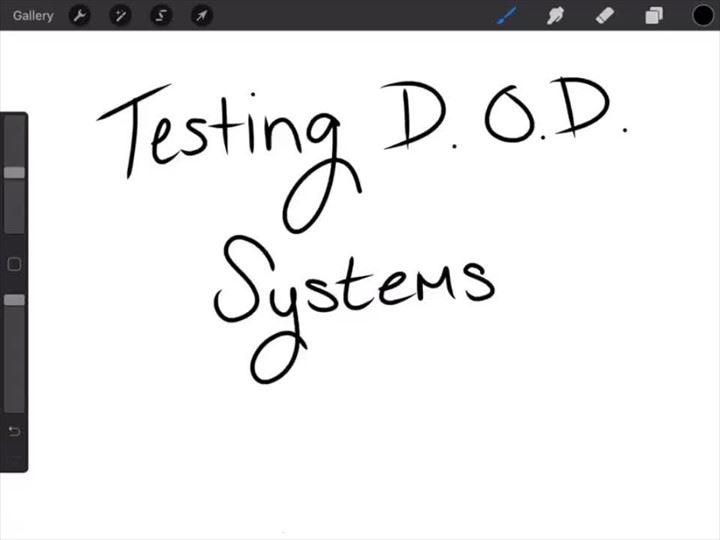 Gallery
Testing D.O.D.
Systems